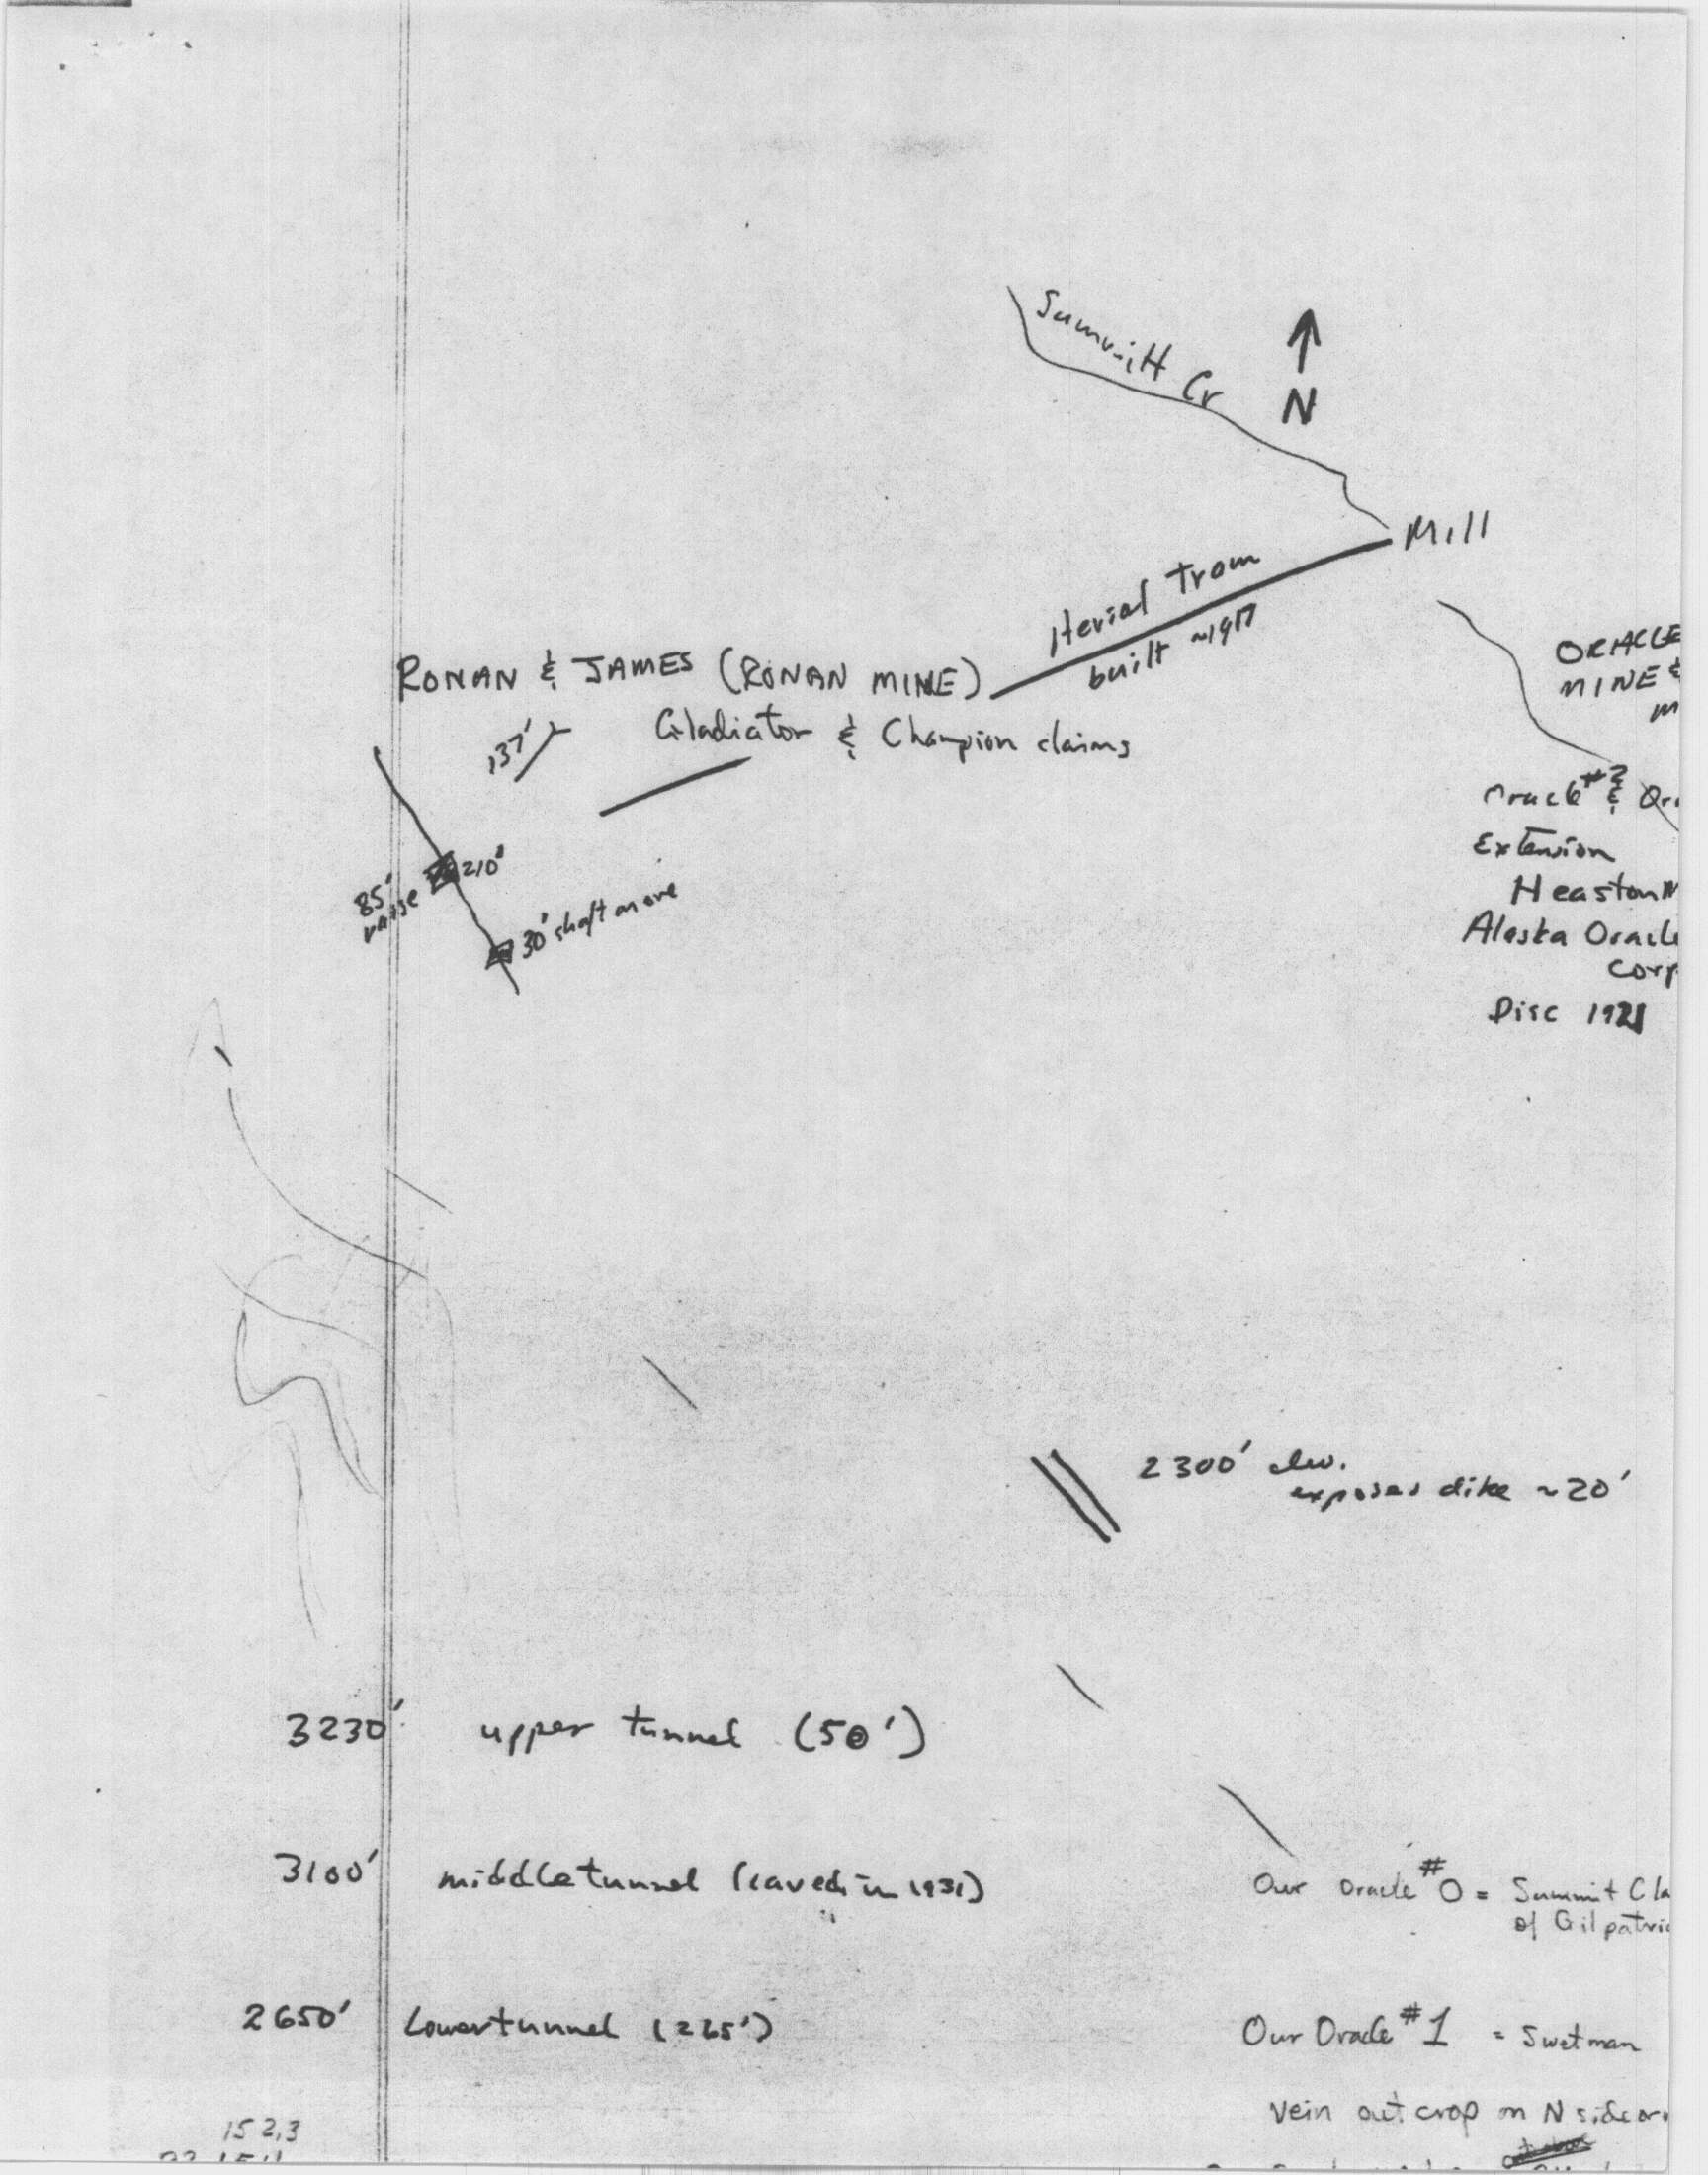 Summitt Cr
N
Mill
Aerial Tram
built ~1917
ORACLE
MINE &
M
RONAN & JAMES (RONAN MINE)
Gladiator & Champion claims
137'
Oracle #2 & Or
Extension
Heaston
Alaska Oracle
Corp
Disc 1921
85'
raise
210'
30' shaft on ore
2300' elev.
exposes dike ~20'
3230' upper tunnel (50')
3100' middle tunnel (caved in 1931)
Our Oracle #0 = Summit Cla
of Gilpatric
2650' Lower tunnel (265')
Our Oracle #1 = Swetman
Vein outcrop on N side
152,3